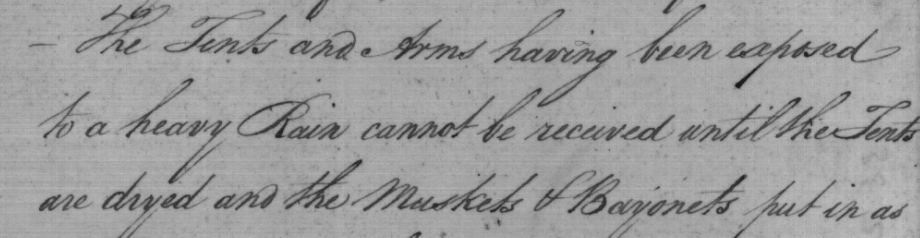 – The Tents and Arms having been exposed
to a heavy Rain cannot be received until the Tents
are dryed and the Muskets & Bayonets put in as